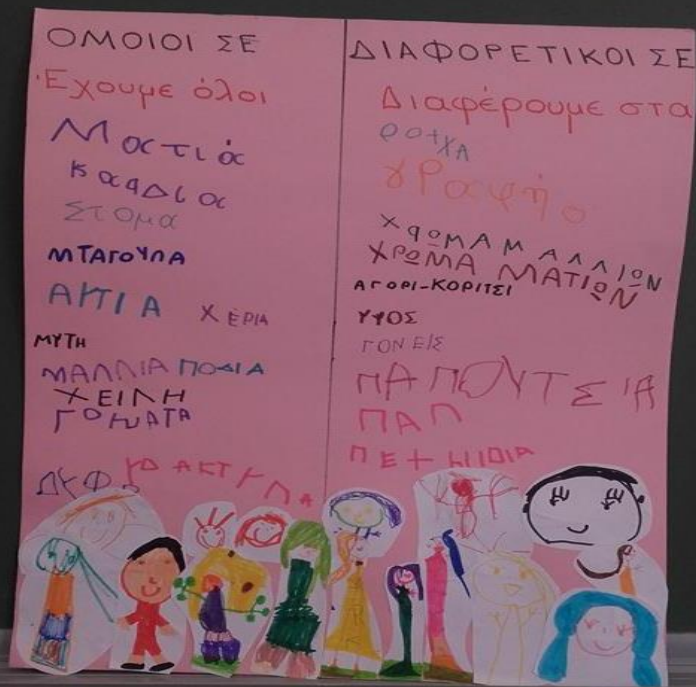 ΟΜΟΙΟΙ ΣΕ
Έχουμε όλοι
Ματιά
καρδια
Στομα
ΜΤΑΓΟΥΛΑ
ΑΥΤΙΑ ΧΕΡΙΑ
ΜΥΤΗ
ΜΑΛΛΙΑ ΠΟΔΙΑ
ΧΕΙΛΗ
ΓΟΝΑΤΑ
ΔΑΚΤΥΛΑ
ΔΙΑΦΟΡΕΤΙΚΟΙ ΣΕ
Διαφέρουμε στα
ΡΟΥΧΑ
γραφή
ΧΡΩΜΑ ΜΑΛΛΙΩΝ
ΧΡΩΜΑ ΜΑΤΙΩΝ
ΑΓΟΡΙ-ΚΟΡΙΤΣΙ
ΥΨΟΣ
ΓΟΝΕΙΣ
ΠΑΠΟΥΤΣΙΑ
ΠΑΠ